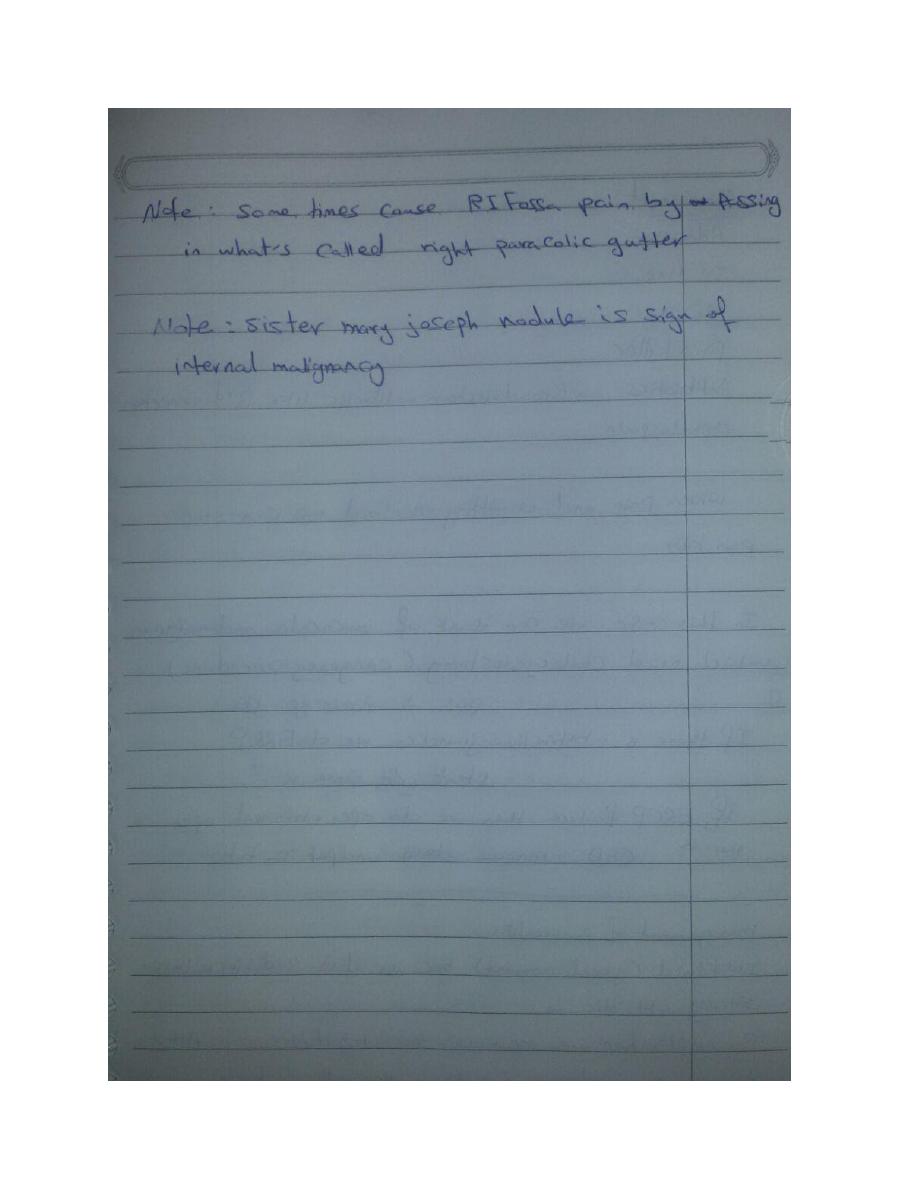 Note : Some times cause RIFossa pain by Assing
in what's called right paracolic gutter
Note : sister mary joseph nodule is sign of
internal malignancy